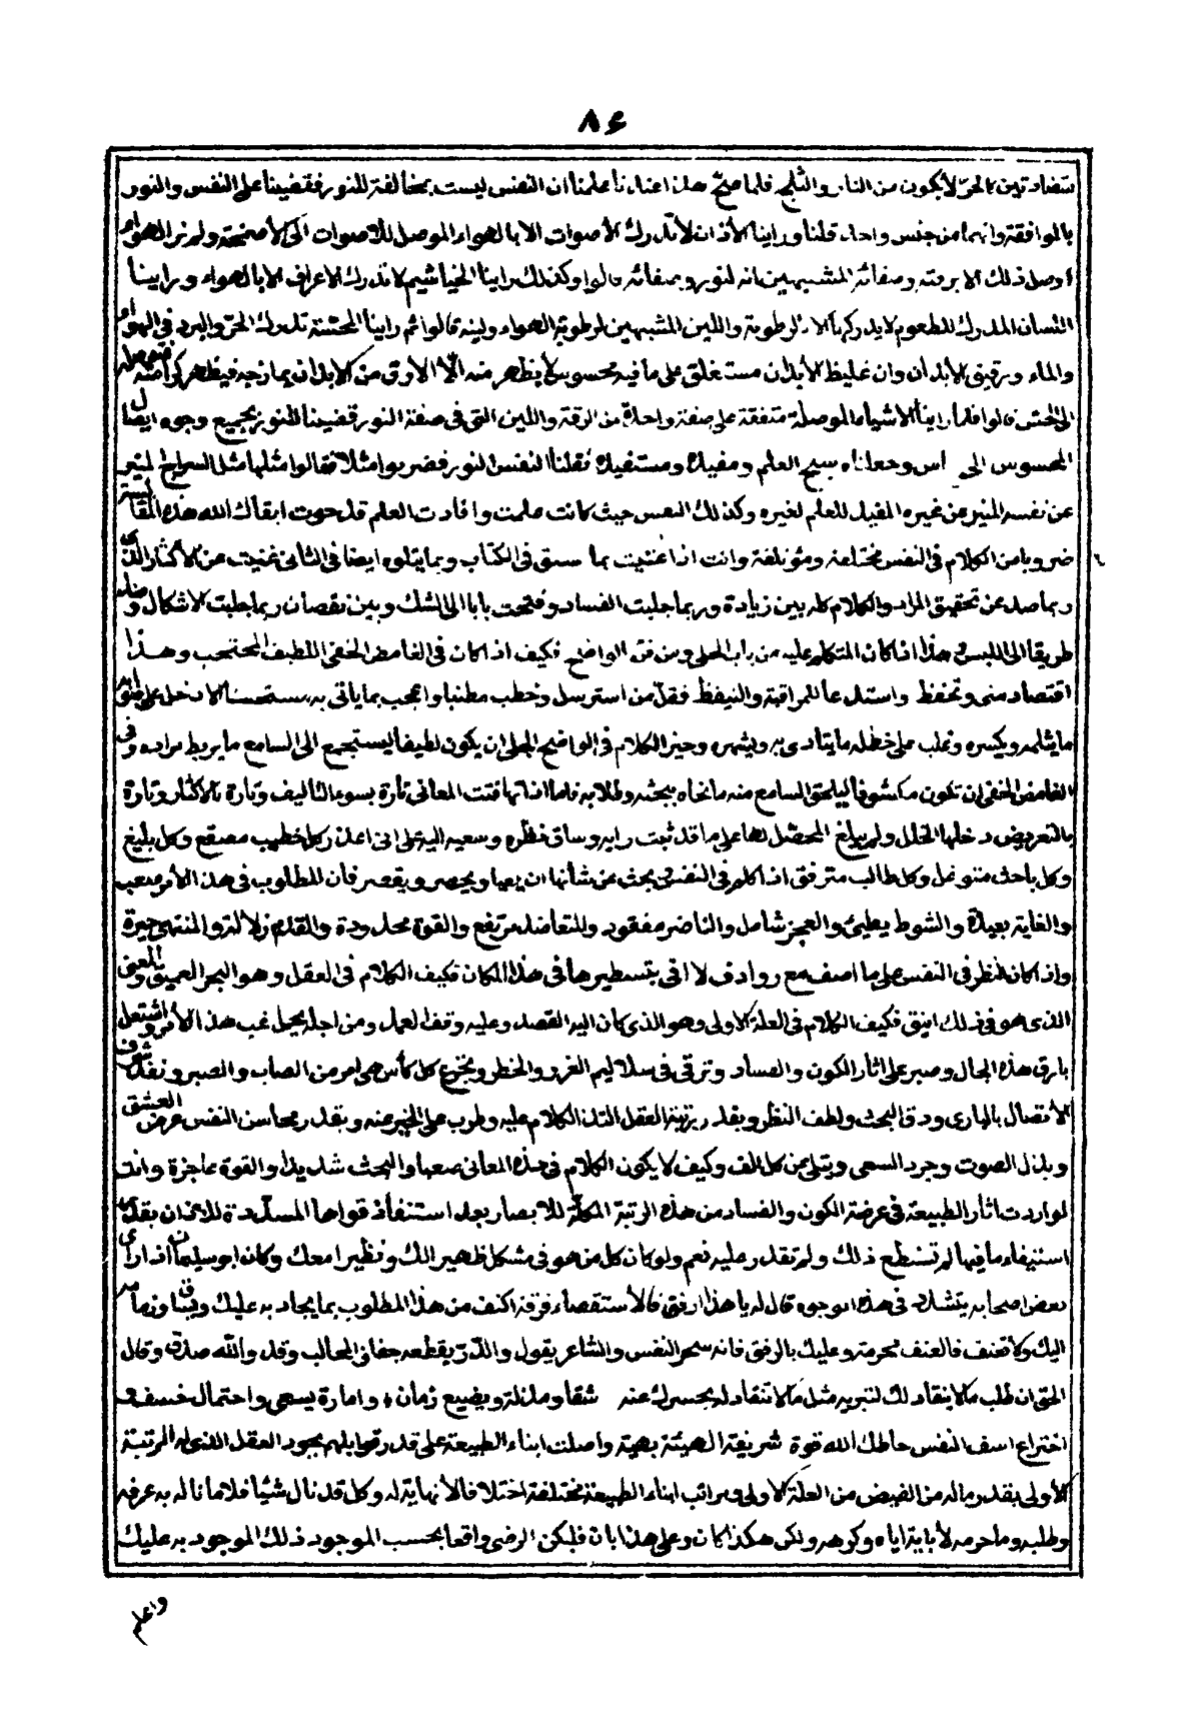 ٨٤
متضادتين كالحر لا يكون من النار والثلج فلما صح هذا عندنا علمنا ان النفس ليست بمخالفة للنور فقضينا على النفس والنور
بالموافقة وانهما من جنس واحد قلنا وراينا الاذان لا تدرك الاصوات الا بالهواء الموصل للاصوات الى الاصمخة ولم نر الهواء
اوصل ذلك الا برقته وصفائه المشبهين انه لنور وبصفائه قالوا وكذلك راينا الخياشيم لا تدرك الاعراف الا بالهواء وراينا
اللسان المدرك للطعوم لا يدركها الا بالرطوبة واللين المشبهين لرطوبة الهواء ولينه قالوا ثم راينا المحسّة تدرك الحر والبرد في الهواء
والماء ورقيق الابدان وان غليظ الابدان مستغلق على ما فيه محسوس لا يظهر منه الا الارق من الابدان يمازجه فيظهر كوامنه فتوصله
الى الحس قالوا فلما راينا الاشياء الموصلة متفقة على صفة واحدة من الرقة واللين التي في صفة النور قضينا للنور بجميع وجوه ايصال
المحسوس الى اس وجعلناه سنح العلم ومفيدة ومستفيدة نقلنا النفس النور فضربوا مثلا فقالوا مثلها مثل السراج المنير
عن نفسه المنير عن غيره المقبل للعلم لغيره وكذلك النفس حيث كانت علمت وافادت العلم قد حوت ابقاك الله هذه المقابسة
ضروبا من الكلام في النفس مختلفة ومؤتلفة وانت اذا عنيت بما سبق في الكتاب وبما يتلوه ايضا في الثاني غنيت عن الاكثار الذي
ربما صد عن تحقيق المراد والكلام كله بين زيادة وربما جلبت الفساد وفتحت بابا الى الشك وبين نقصان ربما جلبت الاشكال وضد
طريقا الى اللبس وهذا اذا كان المتكلم عليه من باب الجلي ومن فن الواضح فكيف اذا كان في الغامض الخفي اللطيف المحتجب وهذا
اقتصاد مني وتحفظ واستدعا للمراقبة والتيقظ فقل من استرسل وخطب مطنبا واعجب بما ياتي به مستحسنا الا دخل على صوابه
ما يثلمه ويكسره وتغلب على خطله ما يتادى به ويشهره وخير الكلام في الواضح الجلي ان يكون لطيفا ليستجمع الى السامع ما يربط مراده وفي
الغامض الخفي ان تكون مكشوفا ليلحق السامع منه ما نحاه ببحثه وطلابه فاما اذا تهافتت المعاني تارة بسوء التاليف وتارة بالاكثار وتارة
بالتعريض دخلها الخلل ولم يبلغ المحصل لها على ما قد ثبت رايه وساق نظره وسعيه اليه على انى اعذر كل خطيب مصقع وكل بليغ
وكل باحث متوغل وكل طالب مترفق اذا كلم في النفس وبحث عن شأنها ان يعيا ويحصر ويقصر فان المطلوب في هذا الأمر صعب
والغاية بعيدة والشوط بطيء والعجز شامل والناصر مفقود والمتعاضد مرتفع والقوة محدودة والقدم زلالة والمنتهى حيرة
واذا كان النظر في النفس على ما اصف مع روادف لا افي بتسطيرها في هذا المكان فكيف الكلام في العقل وهو البحر العميق والمعنى
الذي هو في ذلك انيق فكيف الكلام في العلة الاولى وهو الذي كان اليه القصد وعليه وقف العمل ومن اجله يحمل غب هذا الامر واشتعل
بارق هذه الحال وصبر على اثار الكون والفساد وترقى في سلاليم الغرر والخطر وتجرع كل كأس هي امر من الصاب والصبر وبقدر شرف
الاتصال بالباري ودق البحث ولطف النظر وبقدر زينة العقل التذ الكلام عليه وطرب على الخبر عنه وبقدر محاسن النفس عرض العشق
وبذل الصوت وجرد السعي وبتلى عن كل الف وكيف لا يكون الكلام في هذه المعاني صعبا والبحث شديدا والقوة عاجزة وانت
لو اردت اثار الطبيعة في عرضة الكون والفساد من هذه الرتبة الممكنة للابصار بعد استنفاذ قواها المسددة للاذهان بقدر
استيفاء ما فيها لم تستطع ذلك ولم تقدر عليه نعم ولو كان كل من هو في مشكك ظهيرا لك ونظيرا معك وكان ابو سليمان اذا راى
بعض اصحابه يتشدد في هذه الوجوه قال له يا هذا ارفق فالاستقصاء فرقة اكتف من هذا المطلوب بما يجاد به عليك ويساق زمامه
اليك ولا تعنف فالعنف محرمة وعليك بالرفق فانه سحر النفس والشاعر يقول والدر يقطعه جفاء الحالب وقد والله صدق وقال
المتى ان طلب ما لا ينقاد لك لتبريه مثل ما لا تنقاد له بجسرك عنه شقاء ومذلة ويضيع زمان وامارة يسعى واحتمال خسف
اختراع اسف النفس حاطك الله قوة شريفة الهيئة بهية واصلت ابناء الطبيعة على قدر قوابلهم بجود العقل الذي له المرتبة
الأولى بقدر ماله من الفيض من العلة الاولى ومراتب ابناء الطبيعة مختلفة اختلافا لا نهاية له وكل قد نال شيئا فلاما ناله به عرفه
وطلبه وما حرمه لأبايته اياه وكرهه ولكن هكذا كان وعلى هذا بان فليكن الرضى واقعا بحسب الموجود ذلك الموجود به عليك
واعلم